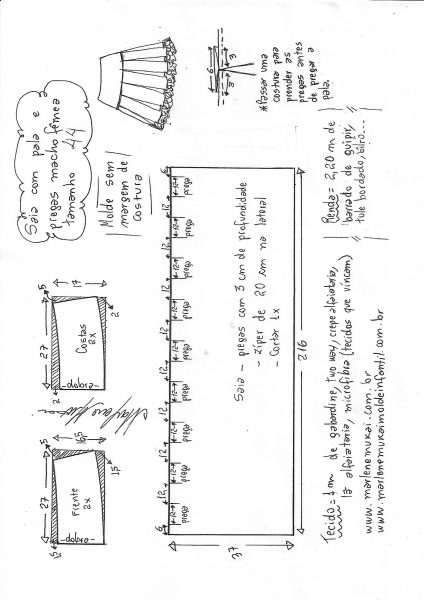 Saia com pala e
pregas macho fêmea
tamanho 44
Molde sem
margem de
costura
6
3
3
*Passar uma
costura para
prender as
pregas antes
de pregar a
pala.
Renda = 2,20 m de
barrado de guipir,
tule bordado, bilro...
Frente
2x
-dobro-
27
16,5
1,5
1,5
Costas
2x
-dobro-
27
17
5
2
2
6 12 12 12 12 12 12 12 12 6
12 12 12 12 12 12 12 12 12
prega prega prega prega prega prega prega prega prega
Saia - pregas com 3 cm de profundidade
- zíper de 20 cm na lateral
- Cortar 1x
37
216
Tecido = m de gabardine, two way, crepe alfaiataria,
lã alfaiataria, microfibra (tecidos que vincam)
www.marlenemukai.com.br
www.marlenemukaimoldeinfantil.com.br